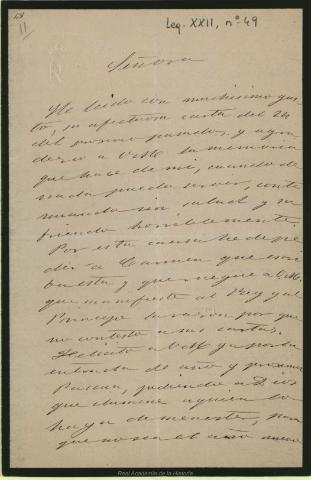 Leg. XXII, nº 49
11
Señora
He leido con muchisimo gus
to, su afectuosa carta del 24
del proximo pasado, y agra
dezco a V.M. la memoria
que hace de mi, cuando de
nada puedo servir, conti
nuando sin salud y su
friendo horriblemente.
Por esta causa he de pe
dir a Carmen que escri
ba esta, y que ruegue a V.M.
que manifieste al Rey y al
Principe la razon por que
no contesto a sus cartas.
Felicito a V.M. ya por la
entrada de año y proxima
Pascua, pidiendo a Dios
que ilumine a quien lo
haya de menester, para
que no sea el año nuevo
Real Academia de la Historia